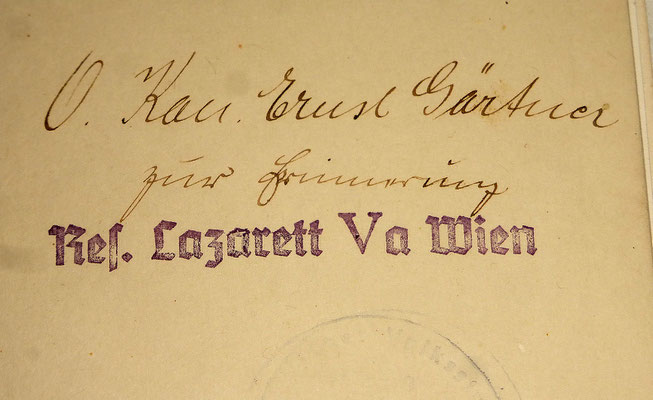 O. Kan. Ernst Gärtner
zur Erinnerung
Res. Lazarett Va Wien